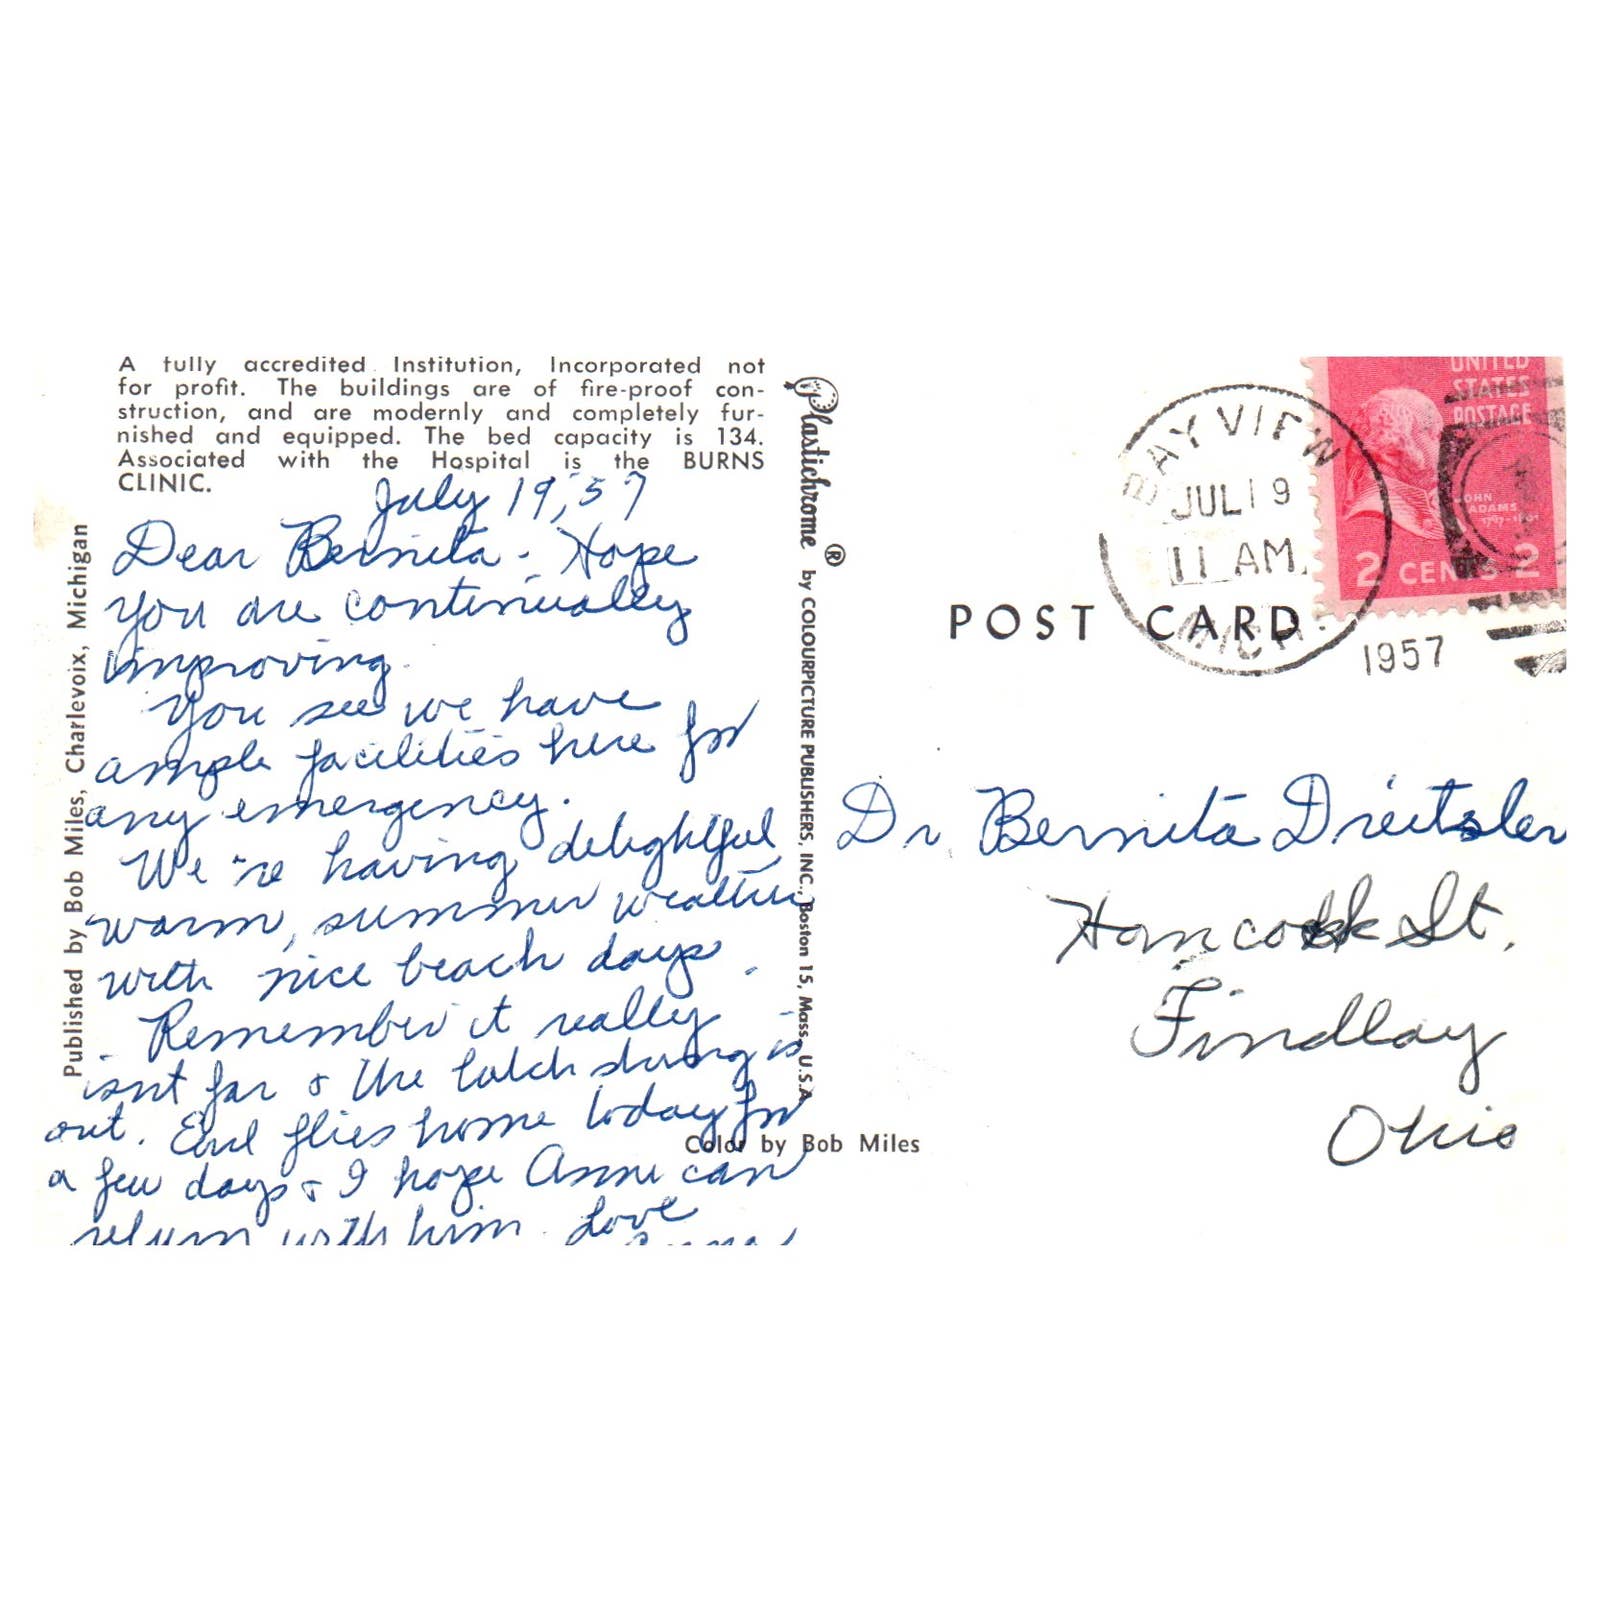 A fully accredited Institution, Incorporated not
for profit. The buildings are of fire-proof con-
struction, and are modernly and completely fur-
nished and equipped. The bed capacity is 134.
Associated with the Hospital is the BURNS
CLINIC.
July 19, 57
Dear Bernita - Hope
you are continually
improving.
You see we have
ample facilities here for
any emergency.
We're having delightful
warm, summer weather
with nice beach days.
Remember it really
isnt far & the latch string is
out. Earl flies home today for
a few days & I hope Anne can
return with him. Love
Published by Bob Miles, Charlevoix, Michigan
Plastichrome ® by COLOURPICTURE PUBLISHERS, INC., Boston 15, Mass., U.S.A.
Color by Bob Miles
POST CARD
BAY VIEW
JUL 19
11 AM.
MICH.
1957
UNITED
STATES
POSTAGE
JOHN
ADAMS
1797-1801
2 CENTS 2
Dr. Bernita Dreitsler
Hancock St.
Findlay
Ohio